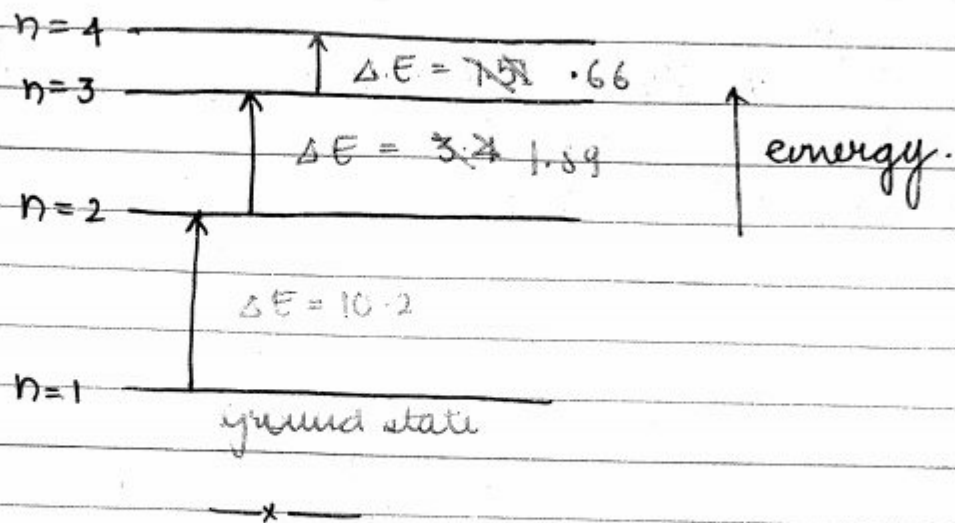 n=4
ΔE = .66
n=3
ΔE = 1.59
energy.
n=2
ΔE = 10.2
n=1
ground state
x